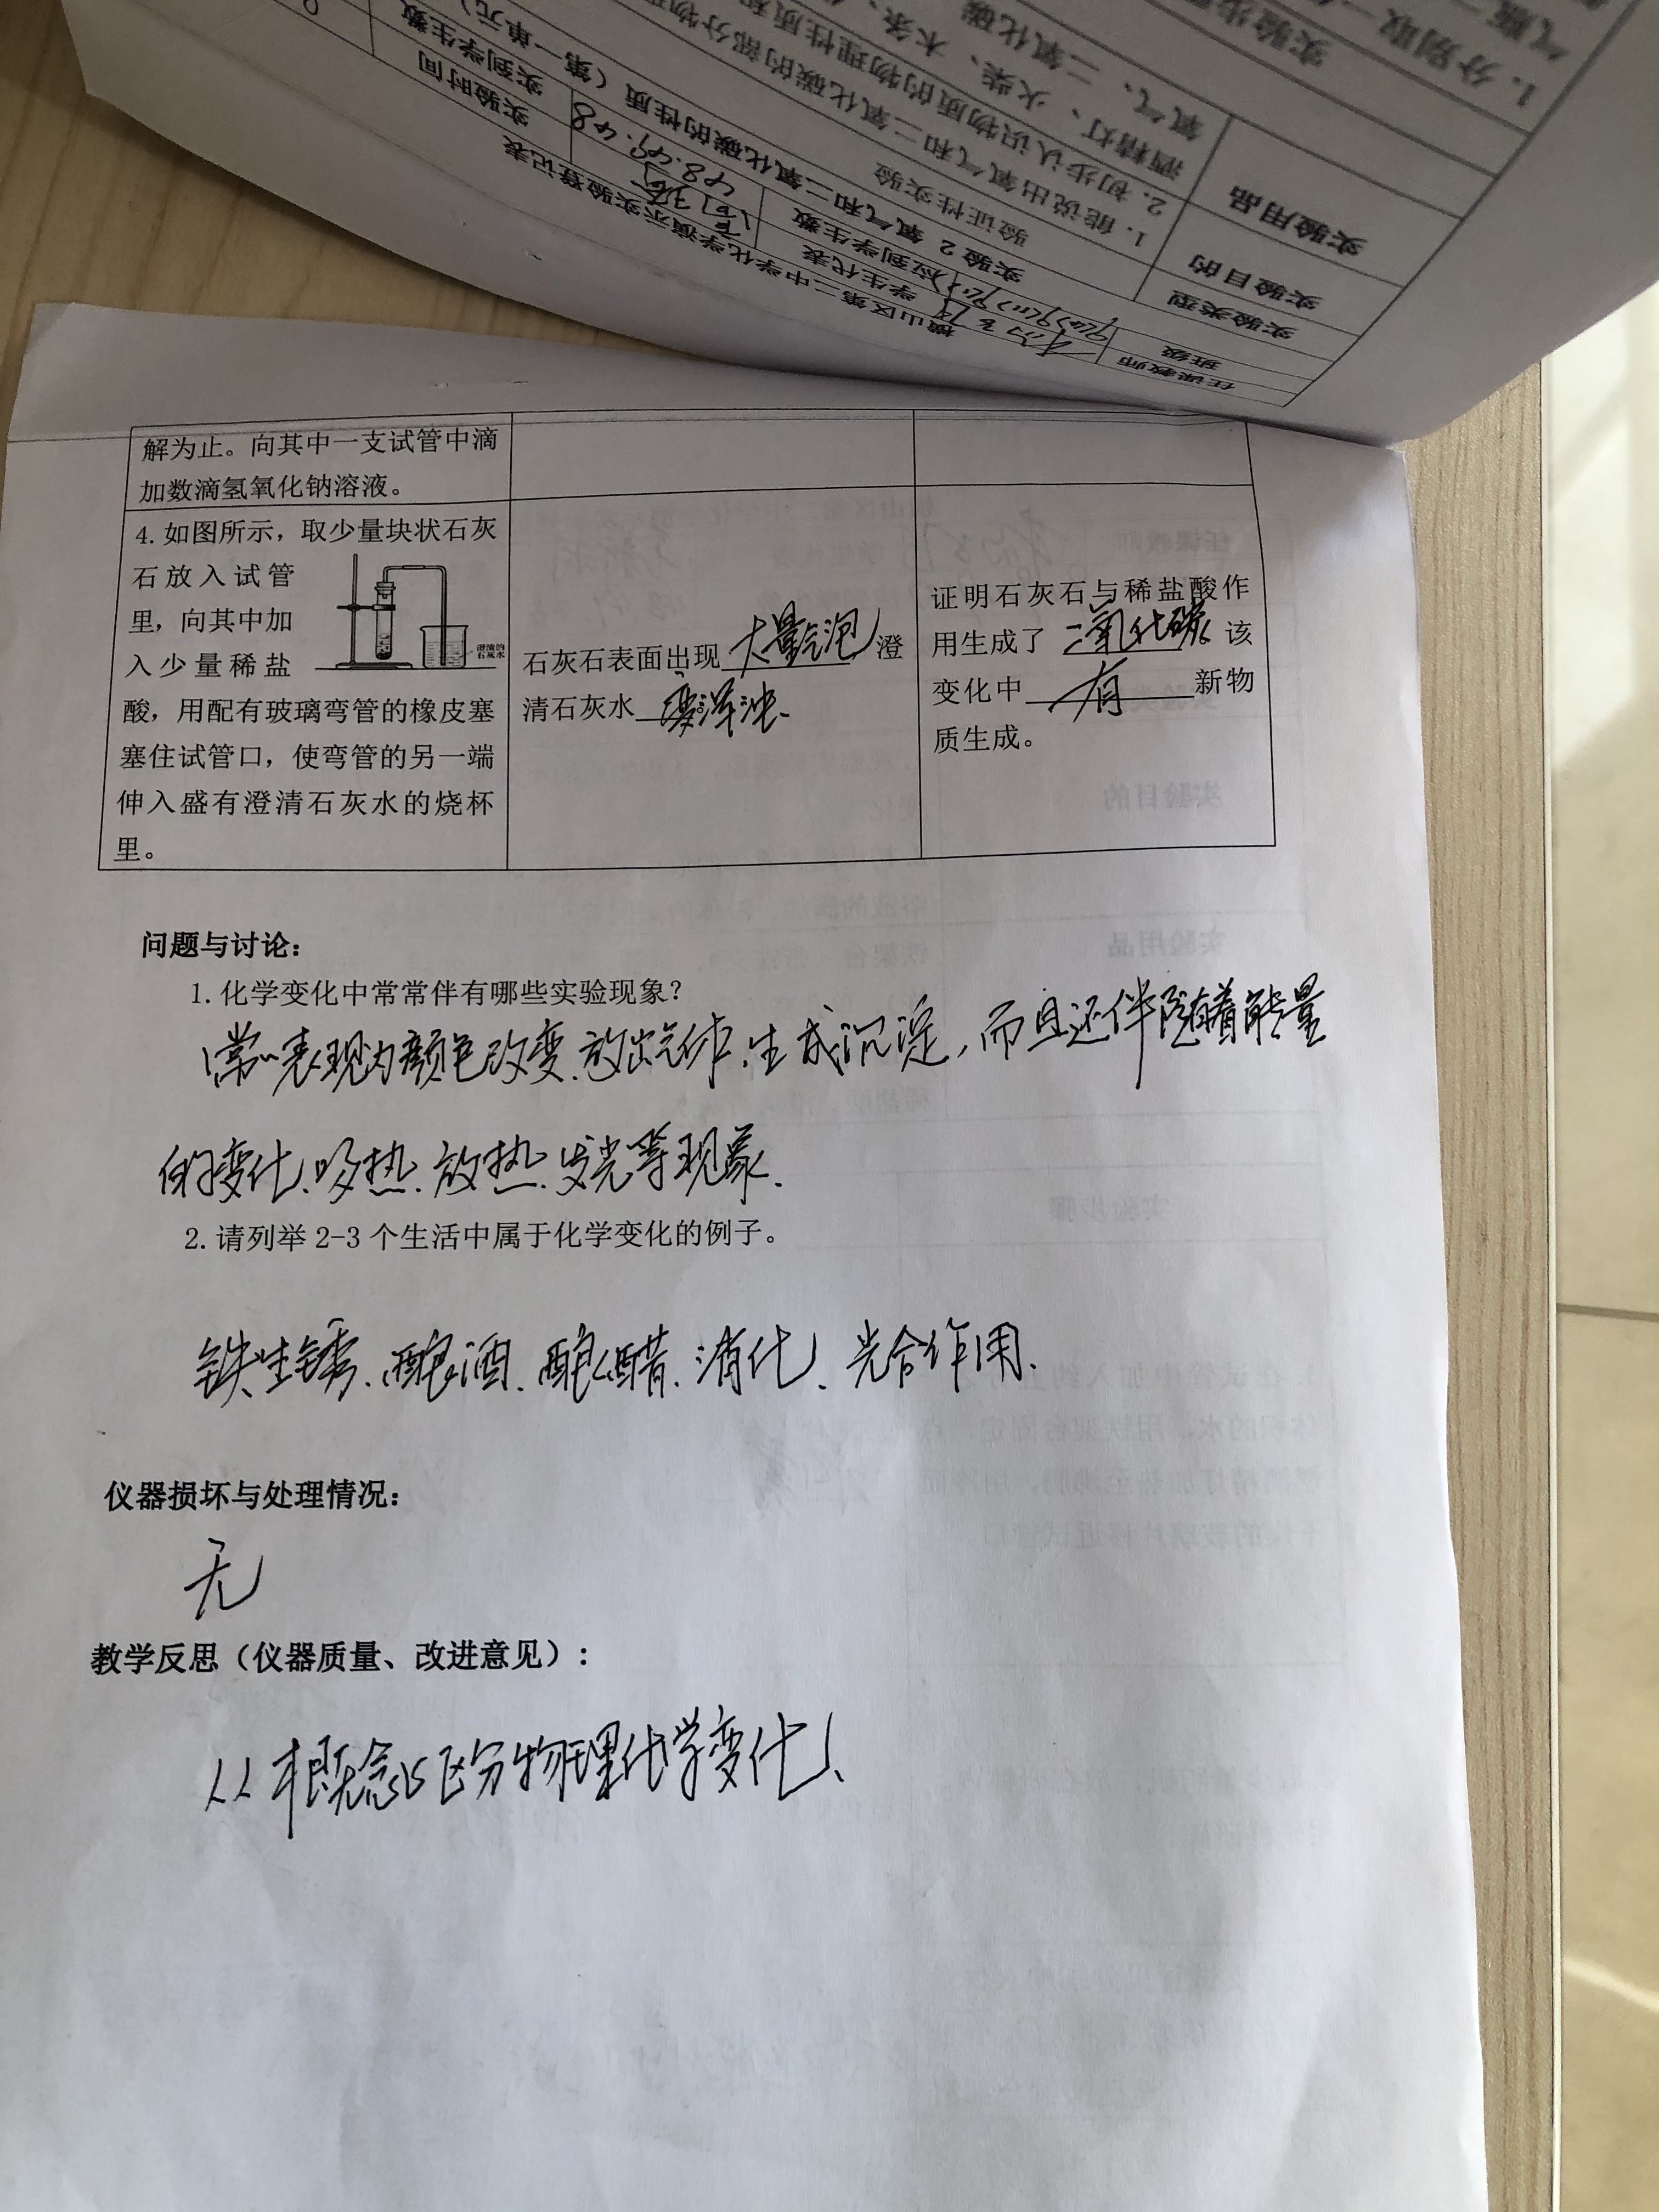 横山区第二中学化学演示实验登记表
任课教师
学生代表
实验时间
班级
应到学生数
48.49.48
实到学生数
实验2 氧气和二氧化碳的性质（第一单元）
实验类型
验证性实验
实验目的
1.能说出氧气和二氧化碳的部分物理
2.初步认识物质的物理性质和
实验用品
酒精灯、火柴、木条、
氧气、二氧化碳
实验步骤
1.分别取一
气瓶
解为止。向其中一支试管中滴
加数滴氢氧化钠溶液。
4.如图所示，取少量块状石灰
石放入试管
里，向其中加
入少量稀盐
澄清的
石灰水
酸，用配有玻璃弯管的橡皮塞
塞住试管口，使弯管的另一端
伸入盛有澄清石灰水的烧杯
里。
石灰石表面出现大量气泡澄
清石灰水变浑浊.
证明石灰石与稀盐酸作
用生成了二氧化碳该
变化中有新物
质生成。
问题与讨论：
1.化学变化中常常伴有哪些实验现象？
常常表现为颜色改变.放出气体.生成沉淀,而且还伴随着能量
的变化、吸热.放热.发光等现象.
2.请列举2-3个生活中属于化学变化的例子。
铁生锈.酿酒.酿醋.消化、光合作用.
仪器损坏与处理情况：
无
教学反思（仪器质量、改进意见）:
从概念以区分物理化学变化、